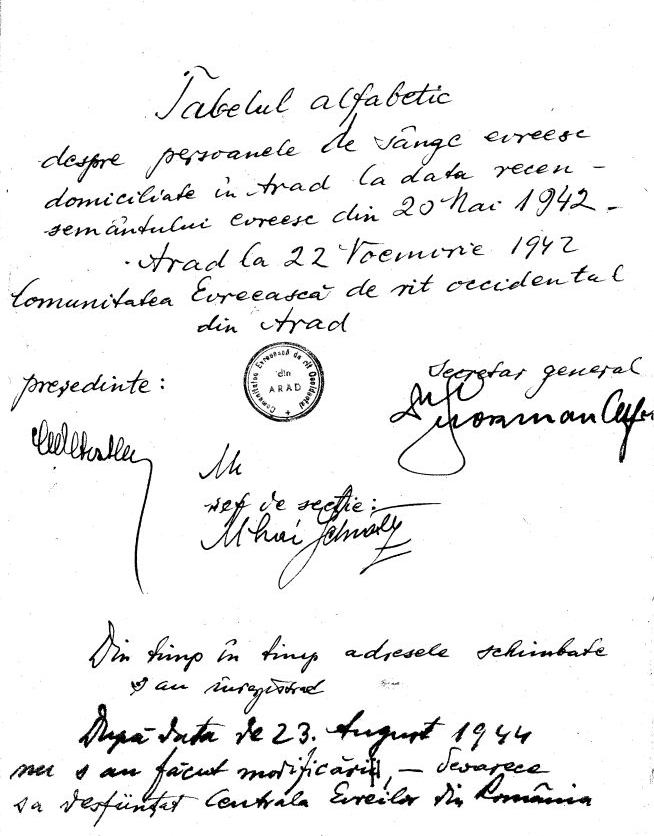 Tabelul alfabetic
despre persoanele de sânge evreesc
domiciliate în Arad la data recen-
sementului evreesc din 20 Mai 1942 -
Arad la 22 Noemvrie 1942
Comunitatea Evreească de rit occidental
din Arad
Comunitatea Evreească de rit Occidental
din
ARAD
președinte:
secretar general
șef de secție:
Mihai
Din timp în timp adresele schimbate
s au înregistrat
După data de 23. August 1944
nu s au făcut modificări, — deoarece
sa desființat Centrala Evreilor din România